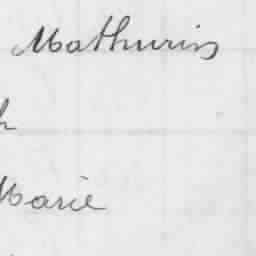 Mathurin
h
Marie